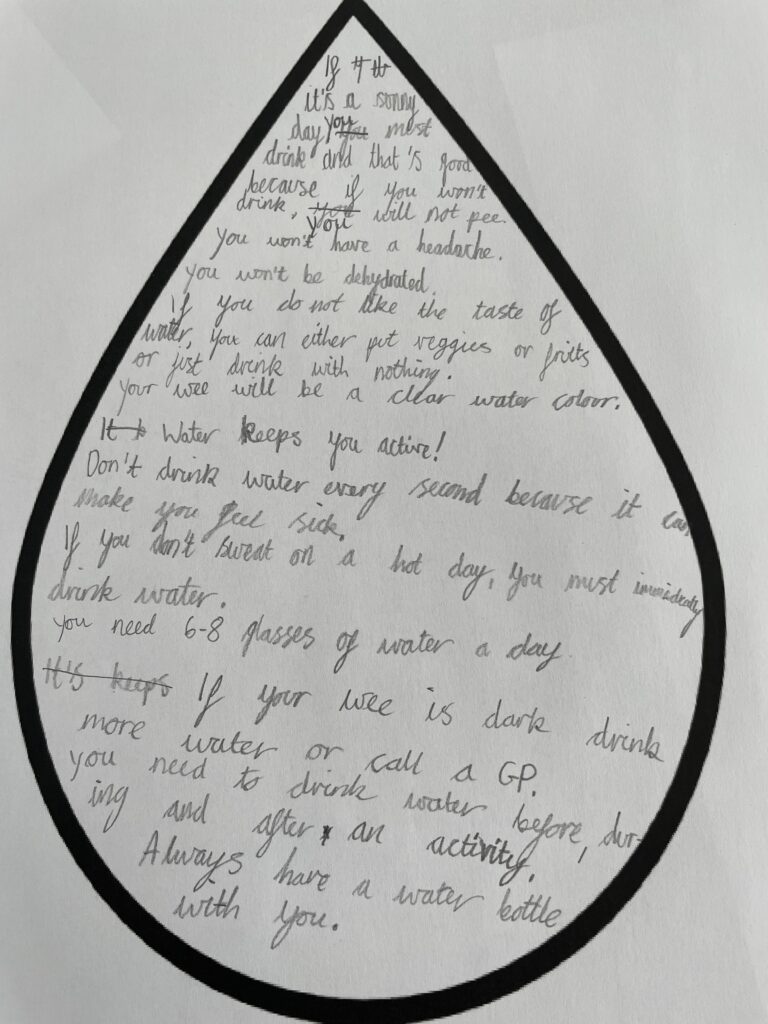 If
it's a sonny
day you must
drink and that's good
because if you won't
drink, you will not pee.
you won't have a headache.
you won't be dehydrated.
If you do not like the taste of
water, you can either put veggies or fritts
or just drink with nothing.
your wee will be a clear water colour.
Water keeps you active!
Don't drink water every second because it can
make you feel sick.
If you don't sweat on a hot day, you must
drink water.
you need 6-8 glasses of water a day.
It's keeps If your wee is dark drink
more water or call a GP.
you need to drink water before, dur-
ing and after an activity.
Always have a water bottle
with you.